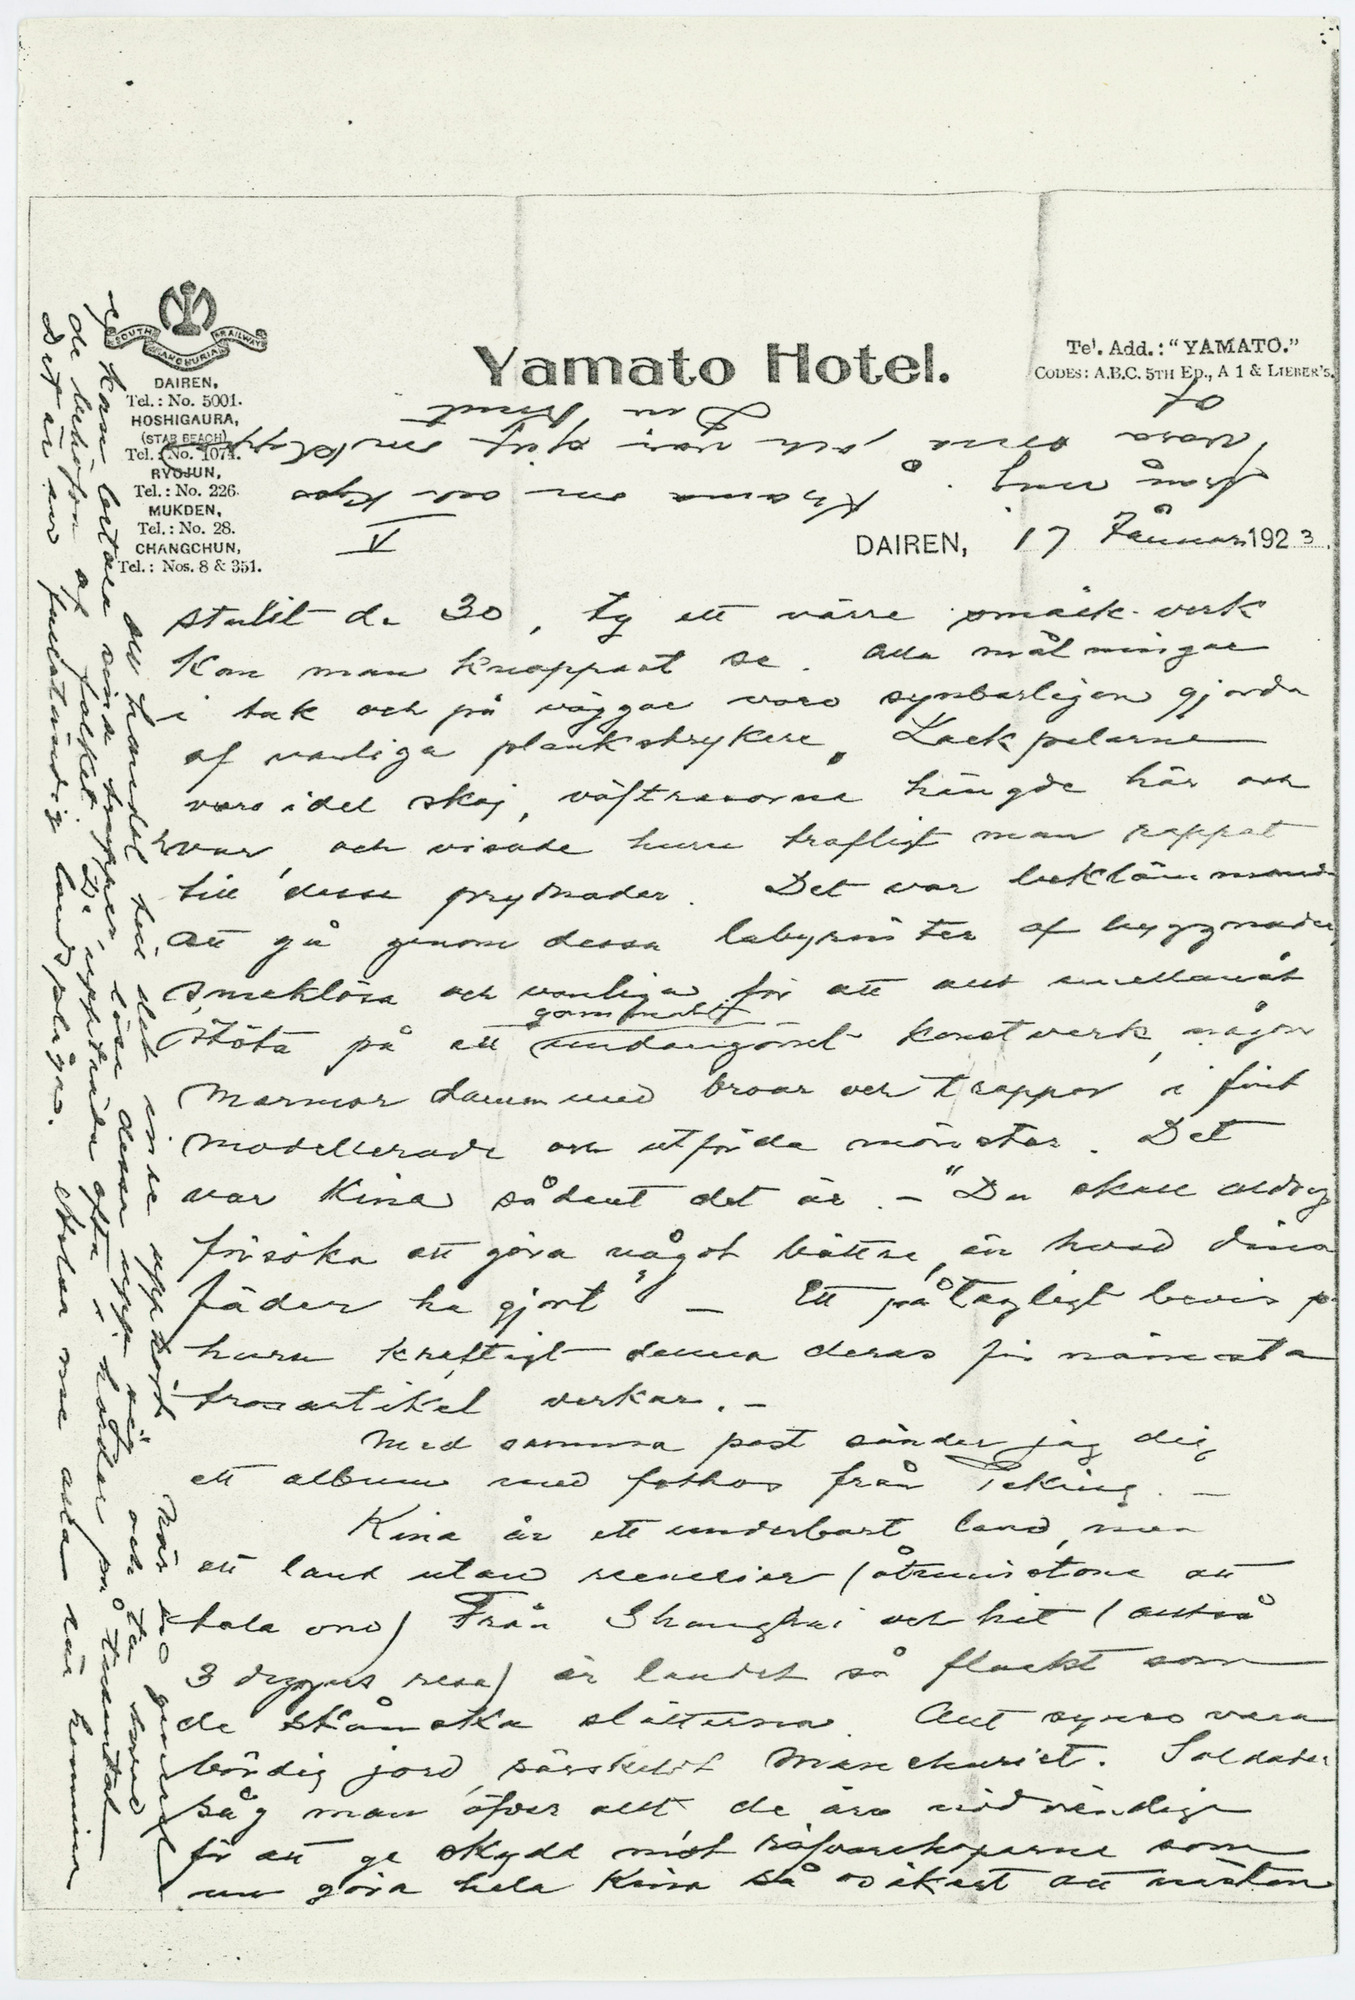 SOUTH MANCHURIA RAILWAY
DAIREN,
Tel.: No. 5001.
HOSHIGAURA,
(STAR BEACH)
Tel.: No. 1071.
RYOJUN,
Tel.: No. 226.
MUKDEN,
Tel.: No. 28.
CHANGCHUN,
Tel.: Nos. 8 & 351.
Yamato Hotel.
Tel. Add.: "YAMATO."
CODES: A.B.C. 5TH ED., A 1 & LIEBER'S.
DAIREN, 17 Januar 1923.
V
stulit de 30, ty ett värre smäck-verk
kan man knappast se. Alla målningar
i tak och på väggar voro synbarligen gjorda
af vanliga plankstrykere. Lackpelarne
voro idel skoj, väftrasorna hängde här och
hvar, och visade huru trafligt man rappat
till dessa prydnader. Det var beklämmande
att gå genom dessa labyrinter af byggnader,
smaklösa och vanliga för att allt emellanåt
stöta på ett gammalt konstverk, någon
marmor damm med broar och trappor i fint
modellerade och utförda mönster. Det
var Kina sådant det är. – "Du skall aldrig
försöka att göra något bättre, än hvad dina
fäder ha gjort" – Ett påtagligt bevis på
huru kraftigt denna deras förnämsta
trosartikel verkar. –
Med samma post sänder jag dig
ett album med fothos från Peking. –
Kina är ett underbart land, men
ett land utan scenerier (åtminstone att
tala om) Från Shanghai och hit (alltså
3 dygns resa) är landet så flackt som
de skånska slätterna. Allt synes vara
bördig jord, särskildt Manchuriet. Soldater
såg man öfver allt de äro nödvändiga
för att ge skydd mot röfvarehoparne som
nu göra hela Kina så osäkert att nästan
all handel till det inre upphört. När en general
ej kan betala sina trupper, lösa dessa upp sig och ta hvad
de behöfva af folket. De uppträda ofta i hordar på tusental
Det är en fullständig landsplåga. Helsa nu alla där hemma
från mig. Krama om och kyss
Din Knut